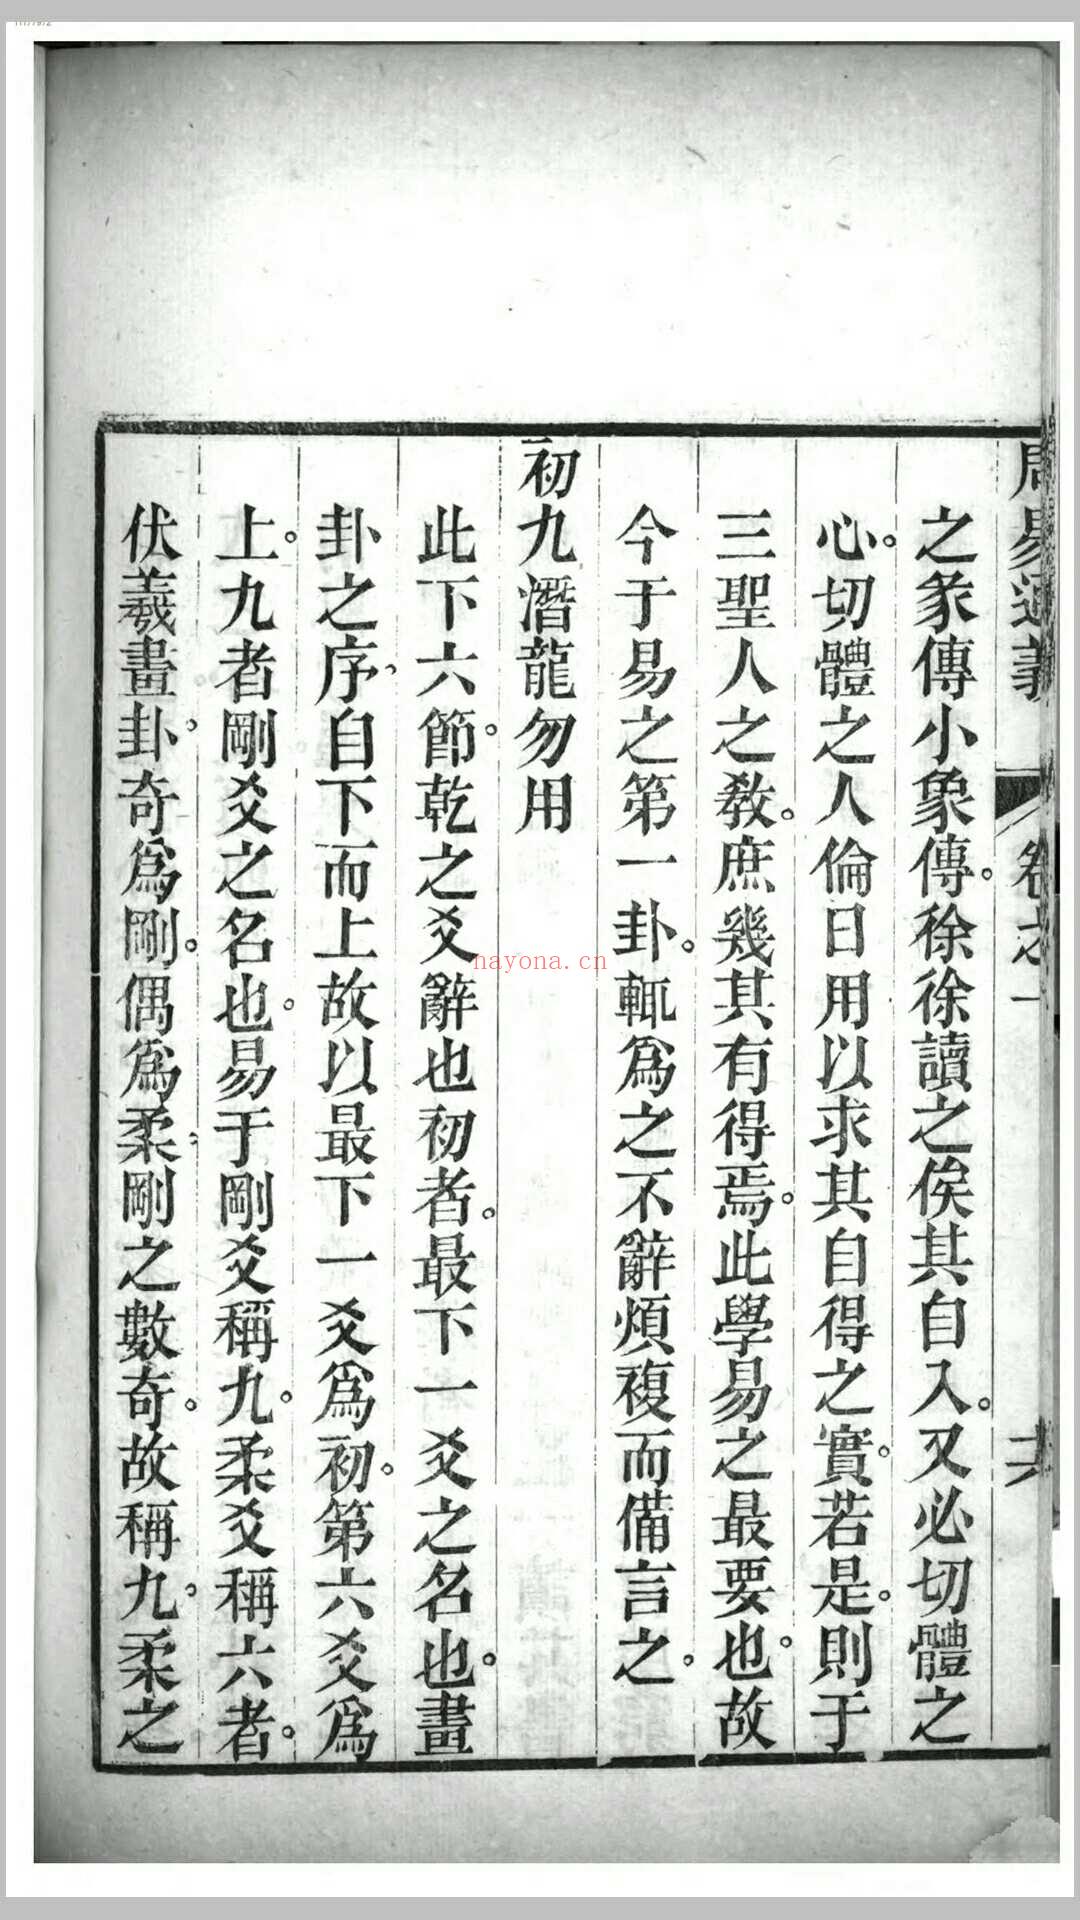 周易通義 卷之一
之彖傳小象傳。徐徐讀之俟其自入。又必切體之
心。切體之人倫日用以求其自得之實。若是。則于
三聖人之教。庶幾其有得焉。此學易之最要也。故
今于易之第一卦。輒爲之不辭煩複而備言之。
初九潛龍勿用
此下六節。乾之爻辭也初者。最下一爻之名也。畫
卦之序。自下而上故以最下一爻爲初。第六爻爲
上。九者剛爻之名也。易于剛爻稱九。柔爻稱六者。
伏羲畫卦。奇爲剛。偶爲柔。剛之數奇。故稱九。柔之
nayona.cn